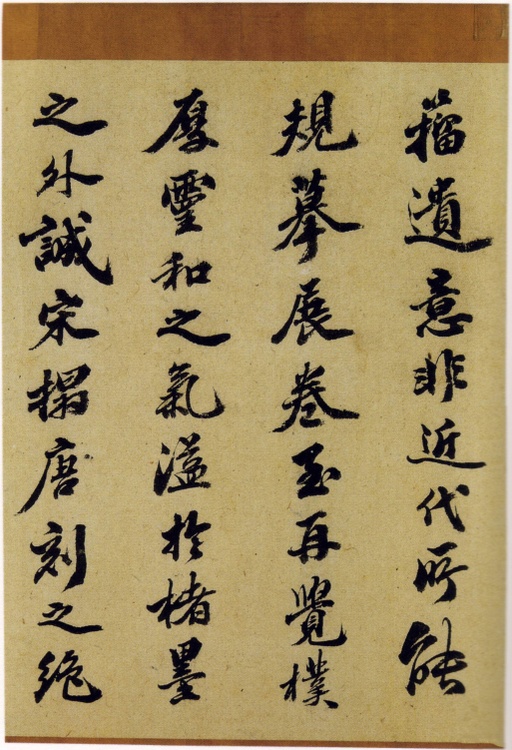 籀遺意非近代所能
規摹展卷至再覺樸
厚靈和之氣溢於楮墨
之外誠宋搨唐刻之絶